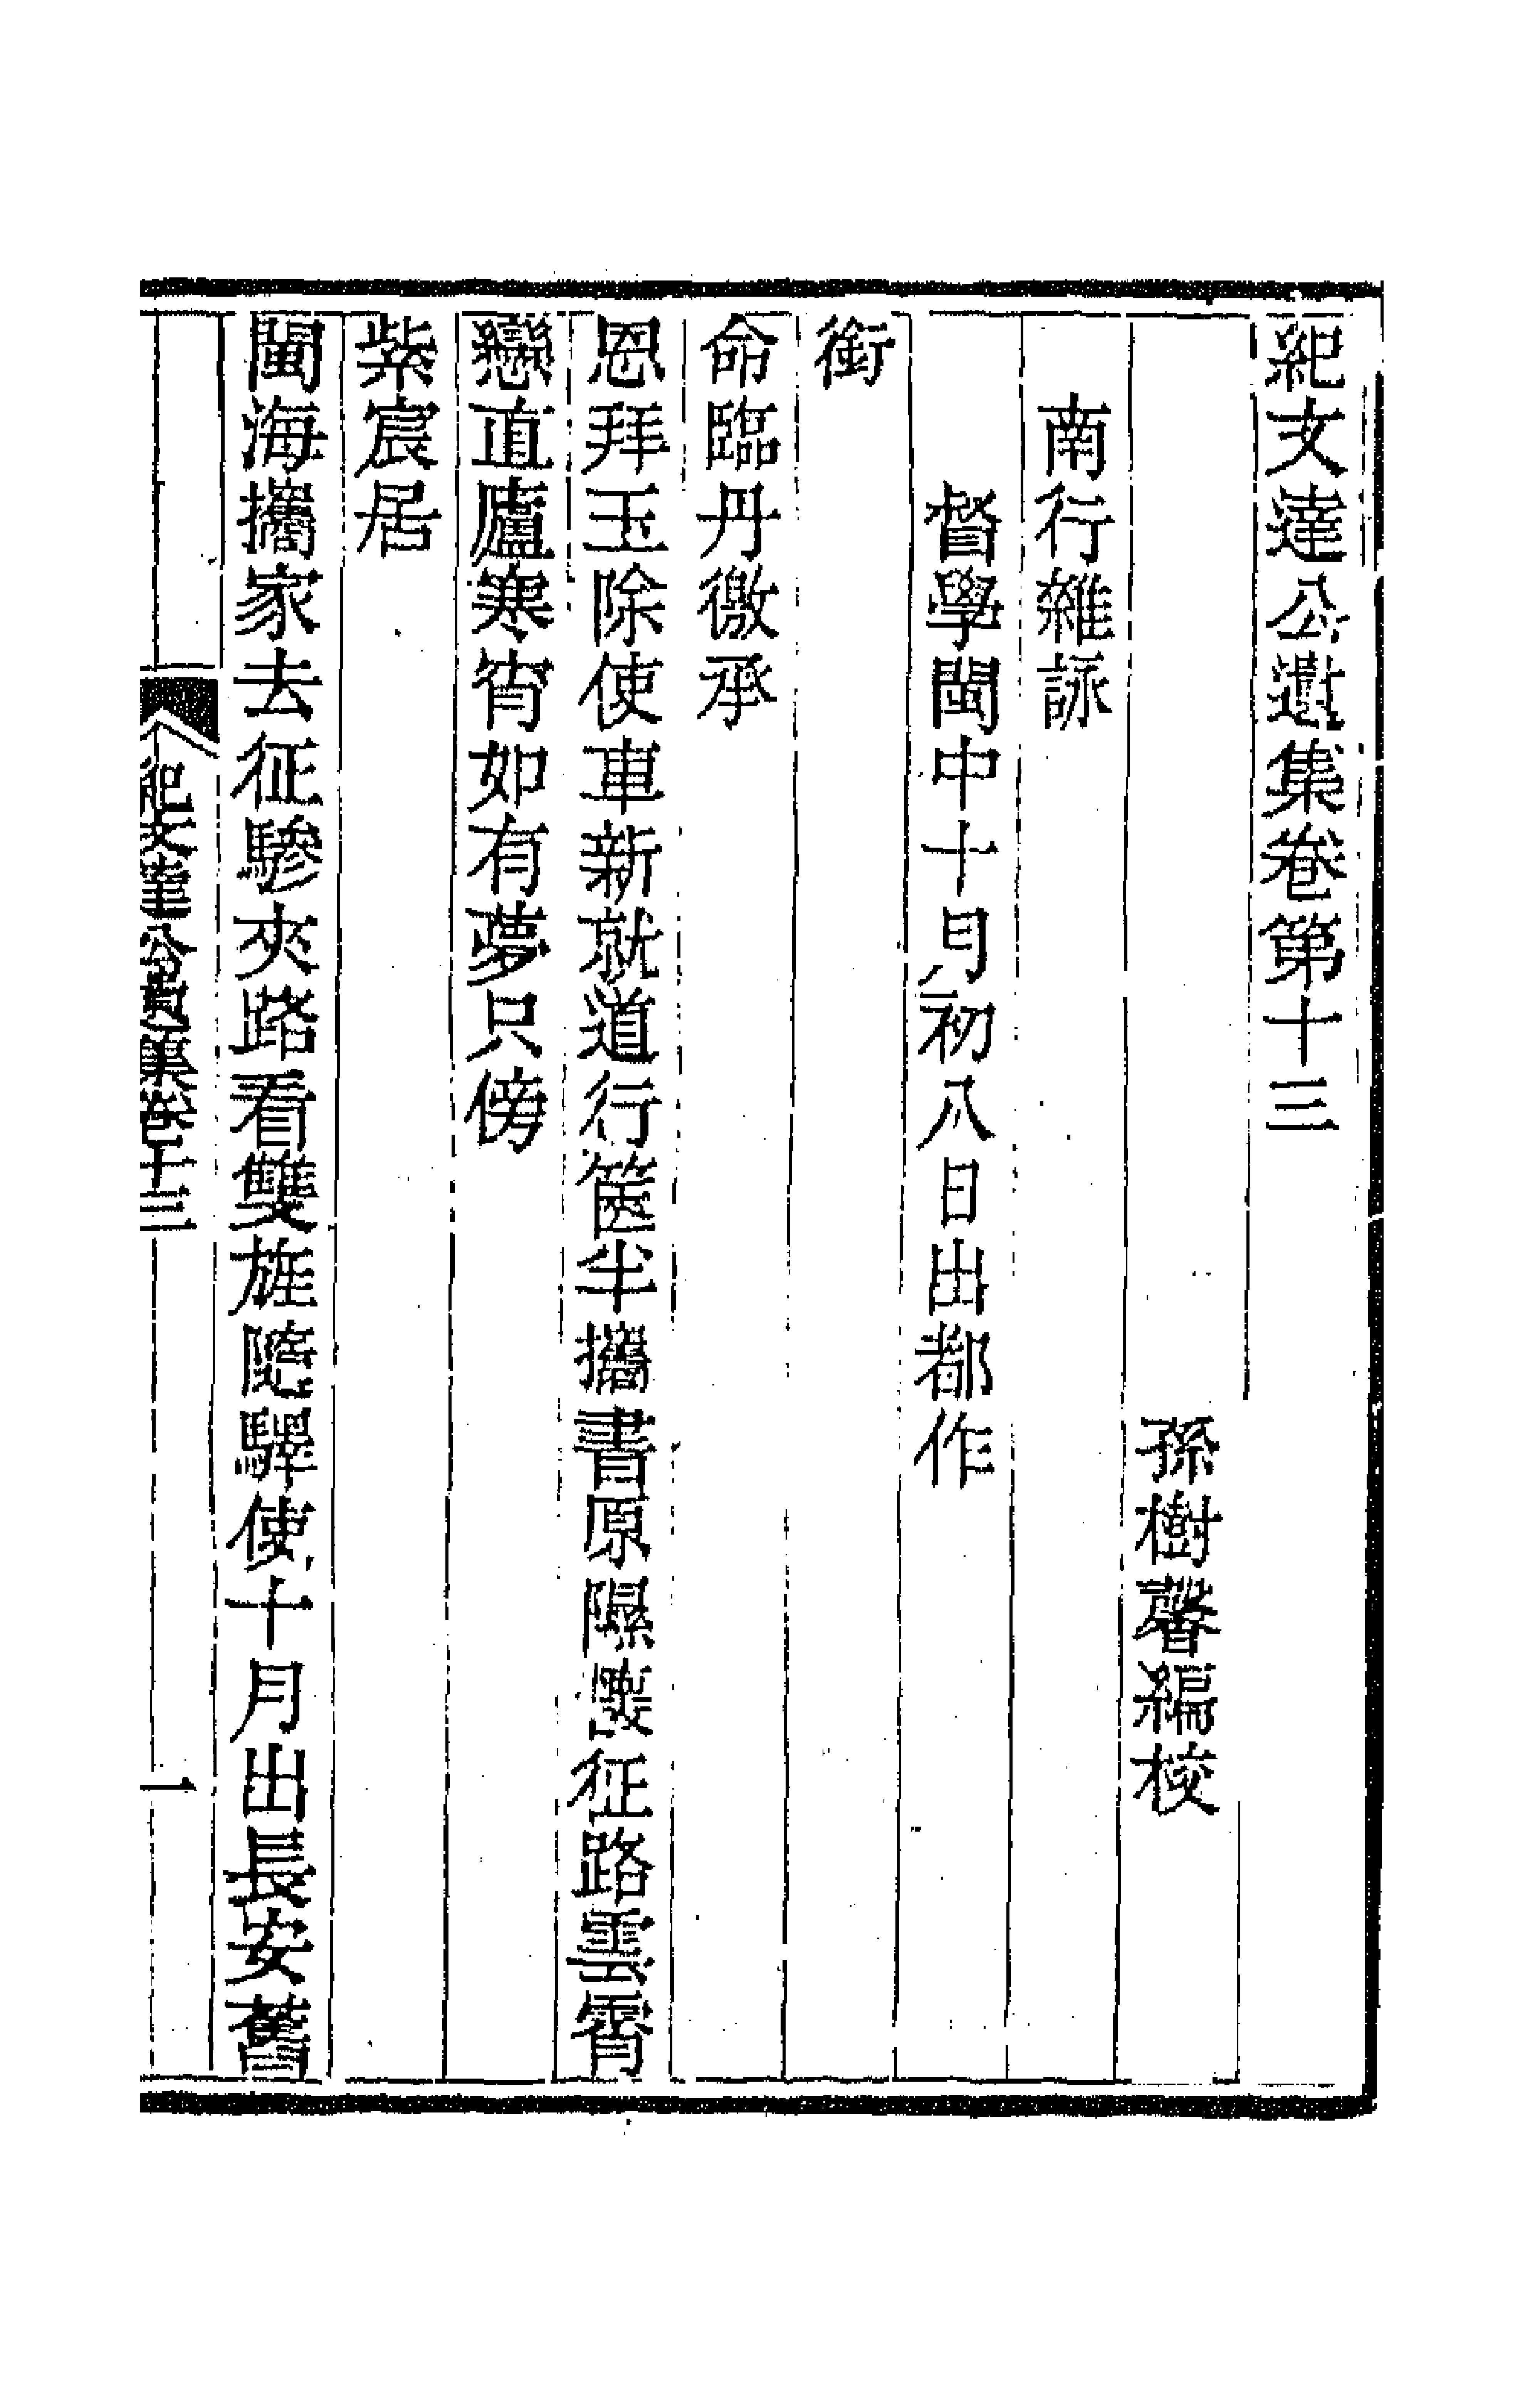 紀文達公遺集卷第十三
孫樹馨編校
南行雜詠
督學閩中十月初八日出都作
銜
命臨丹徼承
恩拜玉除使車新就道行篋半攜書原隰褸征路雲霄
戀直廬寒宵如有夢只傍
紫宸居
閩海攜家去征驂夾路看雙旌隨驛使十月出長安舊
紀文達公遺集卷十三
一